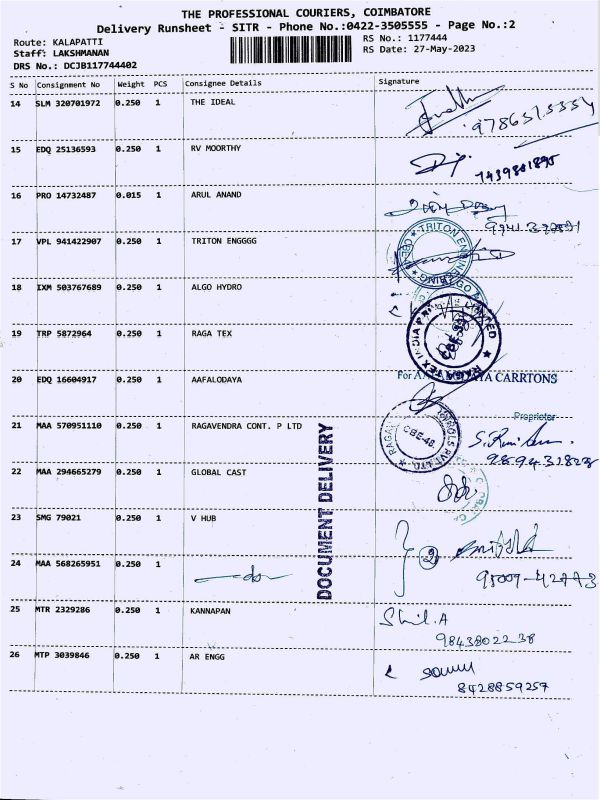 THE PROFESSIONAL COURIERS, COIMBATORE
Delivery Runsheet - SITR - Phone No.:0422-3505555 - Page No.:2
Route: KALAPATTI
RS No.: 1177444
Staff: LAKSHMANAN
RS Date: 27-May-2023
DRS No.: DCJB117744402
S No Consignment No Weight PCS Consignee Details Signature
14 SLM 320701972 0.250 1 THE IDEAL
9786515334
15 EDQ 25136593 0.250 1 RV MOORTHY
7439881895
16 PRO 14732487 0.015 1 ARUL ANAND
17 VPL 941422907 0.250 1 TRITON ENGGGG
18 IXM 503767689 0.250 1 ALGO HYDRO
19 TRP 5872964 0.250 1 RAGA TEX
20 EDQ 16604917 0.250 1 AAFALODAYA
CARRTONS
Proprietor
21 MAA 570951110 0.250 1 RAGAVENDRA CONT. P LTD
CBE-48
22 MAA 294665279 0.250 1 GLOBAL CAST
DOCUMENT DELIVERY
23 SMG 79021 0.250 1 V HUB
24 MAA 568265951 0.250 1 -do-
25 MTR 2329286 0.250 1 KANNAPAN
9843802238
26 MTP 3039846 0.250 1 AR ENGG
8428859257